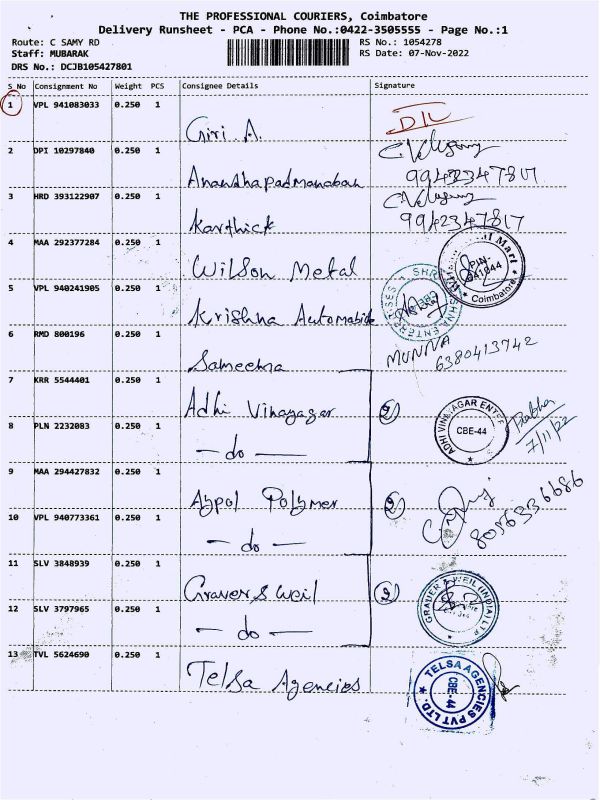 THE PROFESSIONAL COURIERS, Coimbatore
Delivery Runsheet - PCA - Phone No.:0422-3505555 - Page No.:1
Route: C SAMY RD RS No.: 1054278
Staff: MUBARAK RS Date: 07-Nov-2022
DRS No.: DCJB105427801
S_No Consignment No Weight PCS Consignee Details Signature
1 VPL 941083033 0.250 1 Giri A.
2 DPI 10297840 0.250 1 Ananthapadmanaban
3 HRD 393122907 0.250 1 Karthick 9942347817
4 MAA 292377284 0.250 1 Wilson Metal Mart PIN- 641044 Coimbatore
5 VPL 940241905 0.250 1 Krishna
6 RMD 800196 0.250 1 Sameema MUNNA 6380413742
7 KRR 5544401 0.250 1 Adhi Vinayagar ② ADHI VINAYAGAR ENTER CBE-44 Prabha 7/11/22
8 PLN 2232083 0.250 1 — do —
9 MAA 294427832 0.250 1 Polymer ② 8056336686
10 VPL 940773361 0.250 1 — do —
11 SLV 3848939 0.250 1 Grauer & Weil ② GRAUER & WEIL (INDIA) LTD
12 SLV 3797965 0.250 1 — do —
13 TVL 5624690 0.250 1 Telsa Agencies TELSA AGENCIES PVT LTD. CBE-44